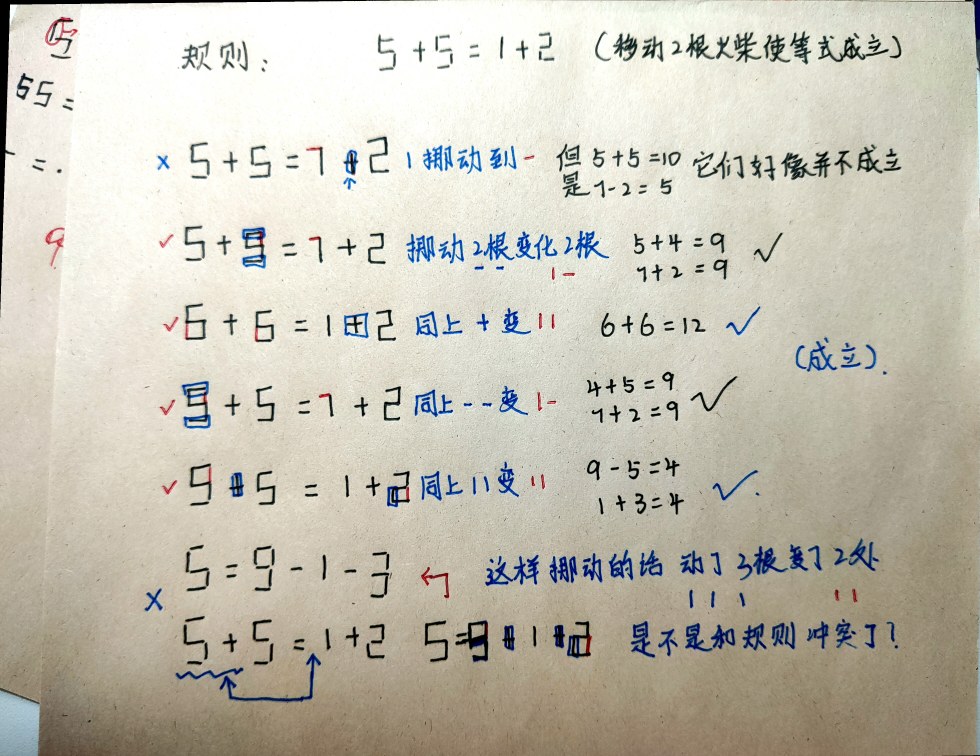 规则： 5+5=1+2 （移动2根火柴使等式成立）
× 5+5=7+2 1挪动到- 但是 5+5=10 7-2=5 它们好像并不成立
✓ 5+9=7+2 挪动2根变化2根 5+4=9 7+2=9 ✓
-- 1-
✓ 6+6=1+2 同上+变11 6+6=12 ✓
（成立）.
✓ 9+5=7+2 同上--变1- 4+5=9 7+2=9 ✓
✓ 9+5=1+2 同上11变11 9-5=4 1+3=4 ✓.
× 5=9-1-3 这样挪动的话 动了3根变了2处
1 1 1 1 1
5+5=1+2 5=9+1+2 是不是和规则冲突了?
5
55=
=.
9